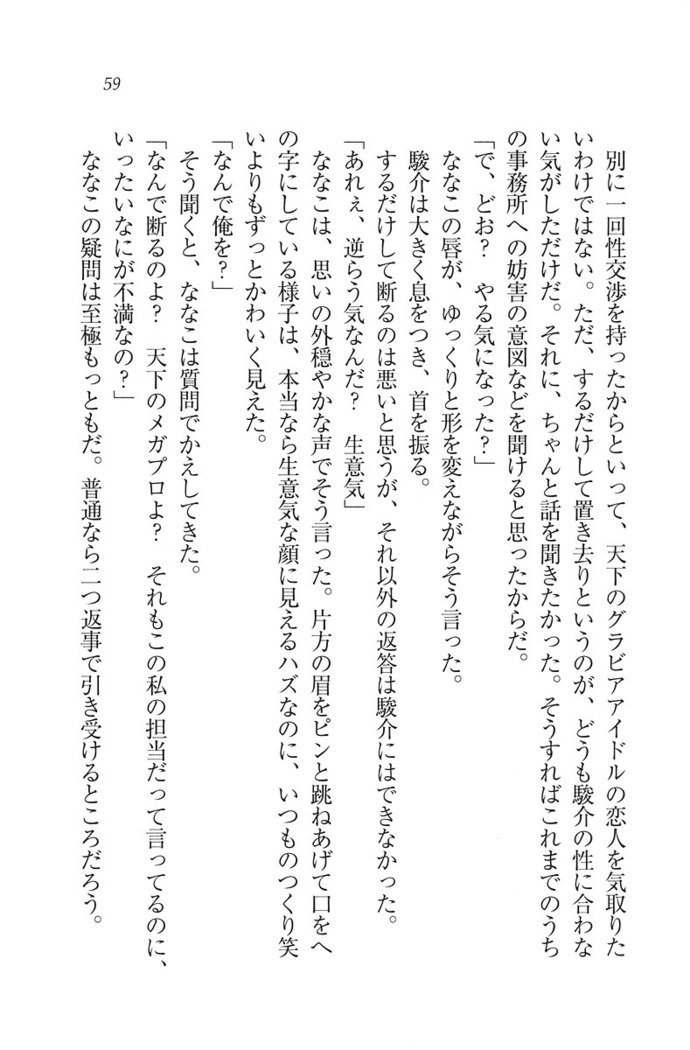 59
別に一回性交渉を持ったからといって、天下のグラビアアイドルの恋人を気取りた
いわけではない。ただ、するだけして置き去りというのが、どうも駿介の性に合わな
い気がしただけだ。それに、ちゃんと話を聞きたかった。そうすればこれまでのうち
の事務所への妨害の意図などを聞けると思ったからだ。
「で、どお？　やる気になった？」
ななこの唇が、ゆっくりと形を変えながらそう言った。
駿介は大きく息をつき、首を振る。
するだけして断るのは悪いと思うが、それ以外の返答は駿介にはできなかった。
「あれぇ、逆らう気なんだ？　生意気」
ななこは、思いの外穏やかな声でそう言った。片方の眉をピンと跳ねあげて口をへ
の字にしている様子は、本当なら生意気な顔に見えるハズなのに、いつものつくり笑
いよりもずっとかわいく見えた。
「なんで俺を？」
そう聞くと、ななこは質問でかえしてきた。
「なんで断るのよ？　天下のメガプロよ？　それもこの私の担当だって言ってるのに、
いったいなにが不満なの？」
ななこの疑問は至極もっともだ。普通なら二つ返事で引き受けるところだろう。